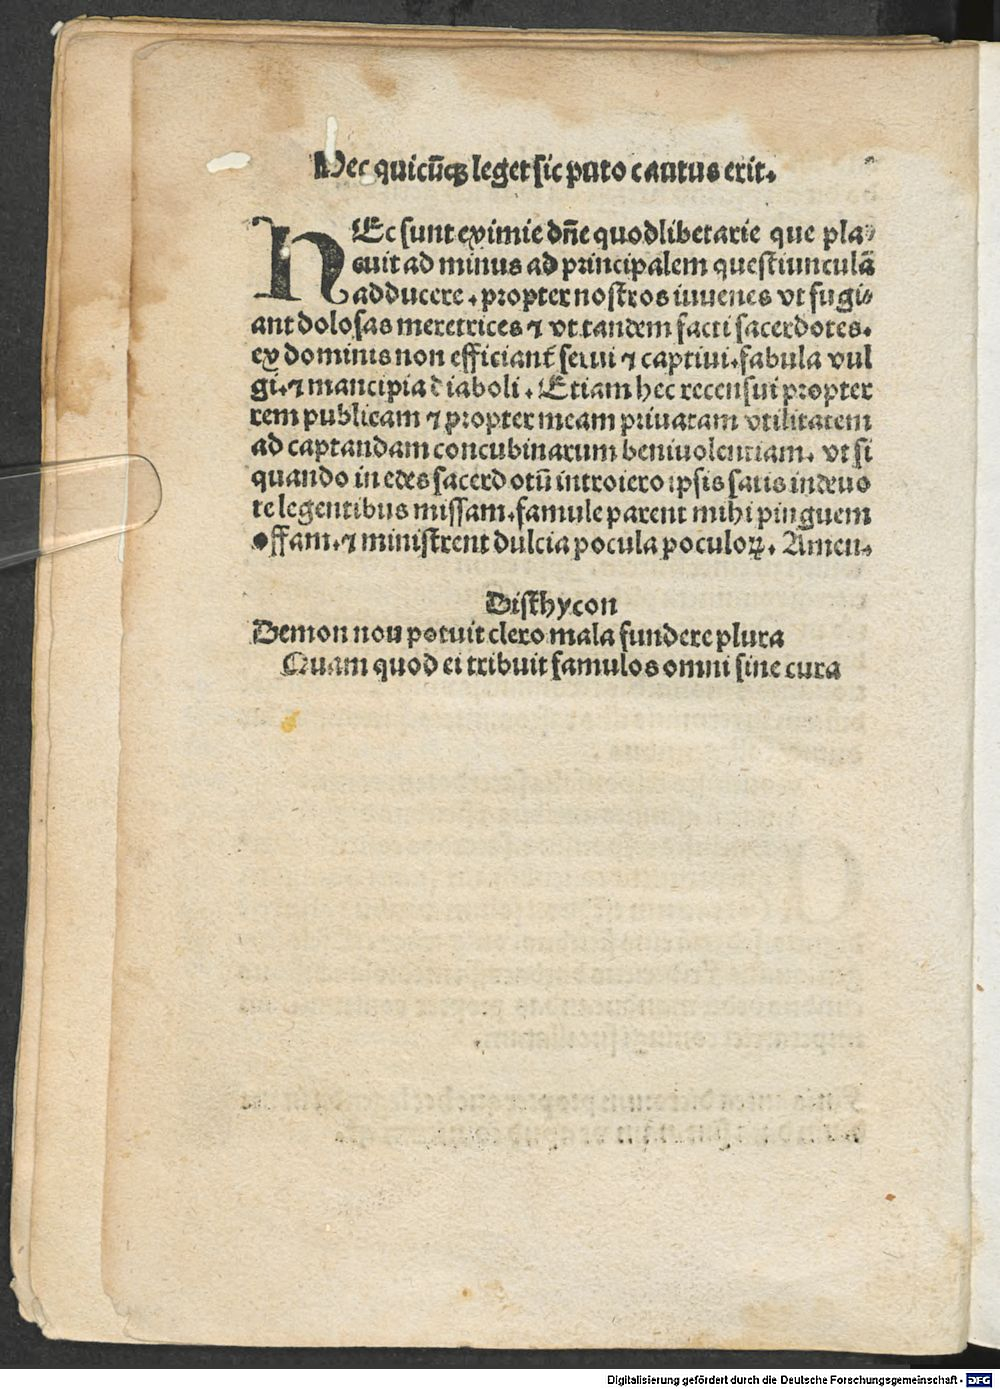 Hec quicūqꝫ leget sic puto cautus erit.
HEc sunt eximie dñe quodlibetarie que pla⸗
cuit ad minus ad principalem questiunculā
adducere. propter nostros iuuenes vt fugi⸗
ant dolosas meretrices ⁊ vt tandem facti sacerdotes.
ex dominis non efficiant̃ serui ⁊ captiui. fabula vul
gi. ⁊ mancipia diaboli. Etiam hec recensui propter
rem publicam ⁊ propter meam priuatam vtilitatem
ad captandam concubinarum beniuolentiam. vt si
quando in edes sacerdotū introiero ipsis satis indeuo
te legentibus missam. famule parent mihi pinguem
offam. ⁊ ministrent dulcia pocula poculoꝝ. Amen.
Disthycon
Demon non potuit clero mala fundere plura
Quam quod ei tribuit famulos omni sine cura
Digitalisierung gefördert durch die Deutsche Forschungsgemeinschaft - DFG